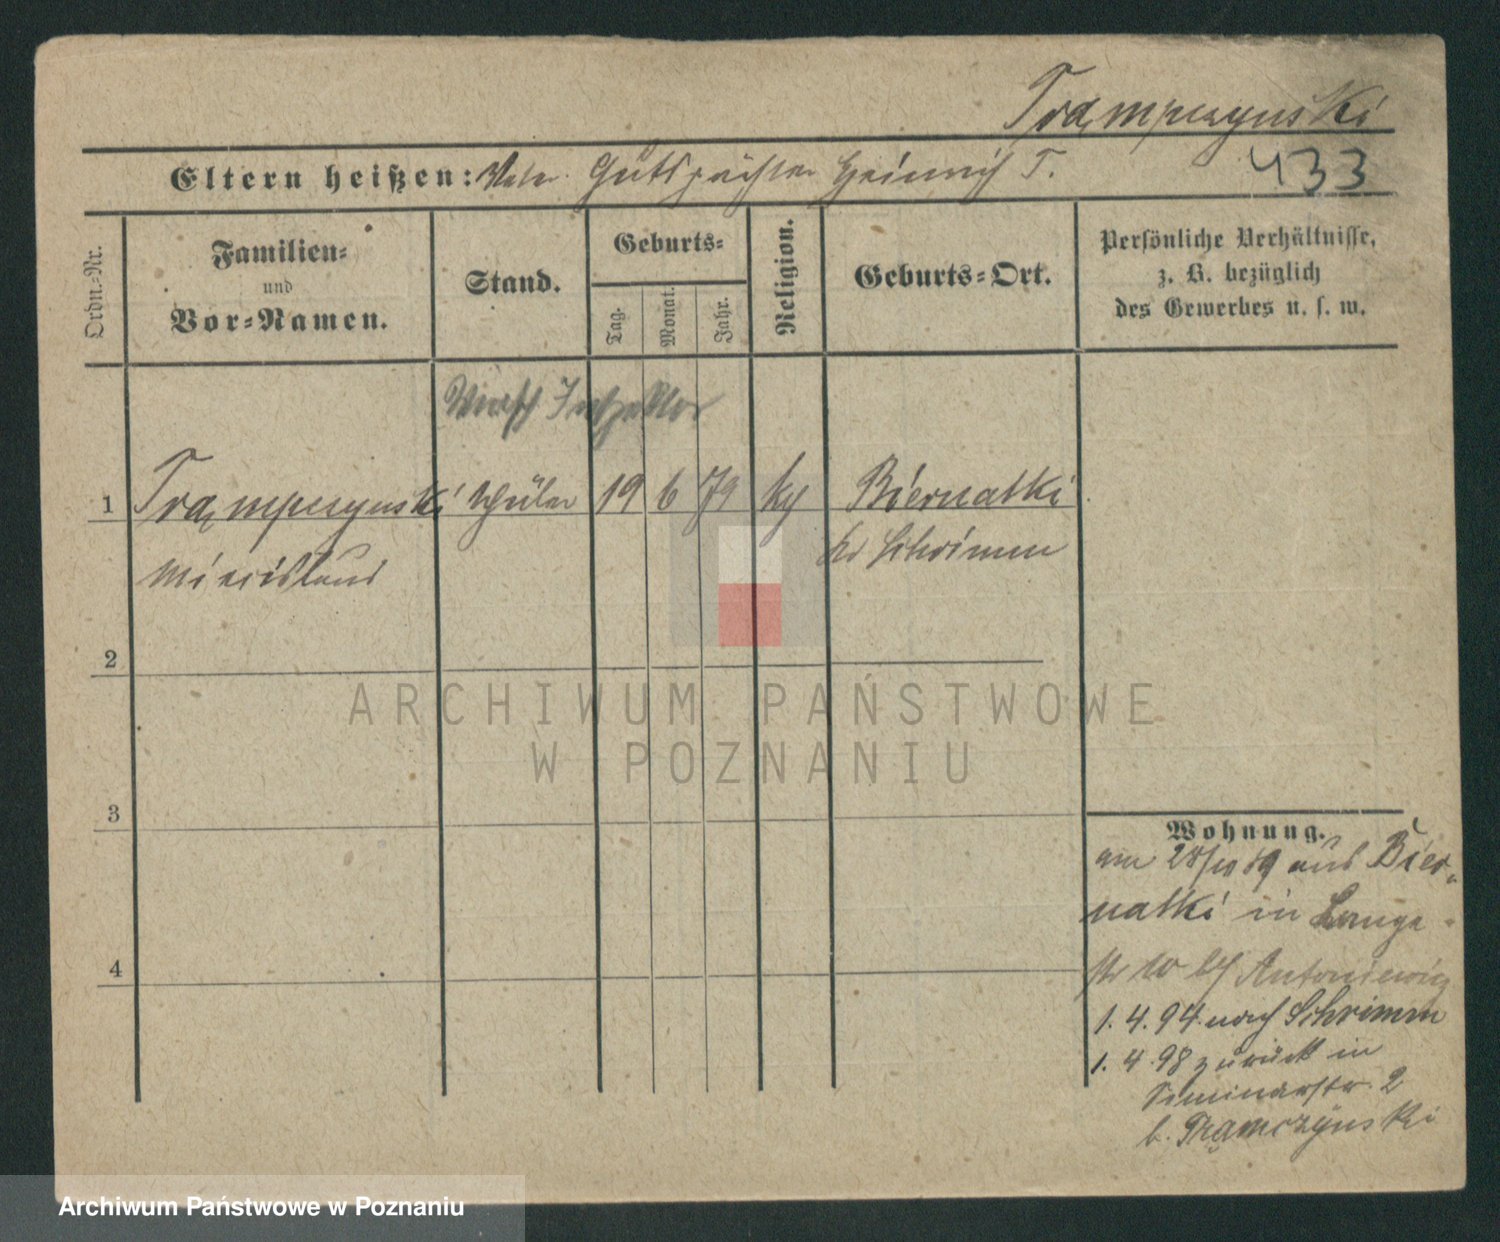 Trąmpczynski
Eltern heißen: Vater Gutspächter Heinrich T. 433
Ordn.-Nr.
Familien-
und
Vor-Namen.
Stand.
Geburts-
Tag.
Monat.
Jahr.
Religion.
Geburts-Ort.
Persönliche Verhältnisse,
z. B. bezüglich
des Gewerbes u. s. w.
Wirtsch Inspektor
1 Trąmpczynski Schüler 19 6 79 kth Biernatki
Miecislaus Kr Schrimm
2
3
4
Wohnung.
am 28/10 89 aus Bier-
natki in Lange-
str 10 bei Antoniewicz
1. 4. 94 nach Schrimm
1. 4. 98 zurück in
Seminarstr. 2
b. Trąmczynski
ARCHIWUM PAŃSTWOWE
W POZNANIU
Archiwum Państwowe w Poznaniu